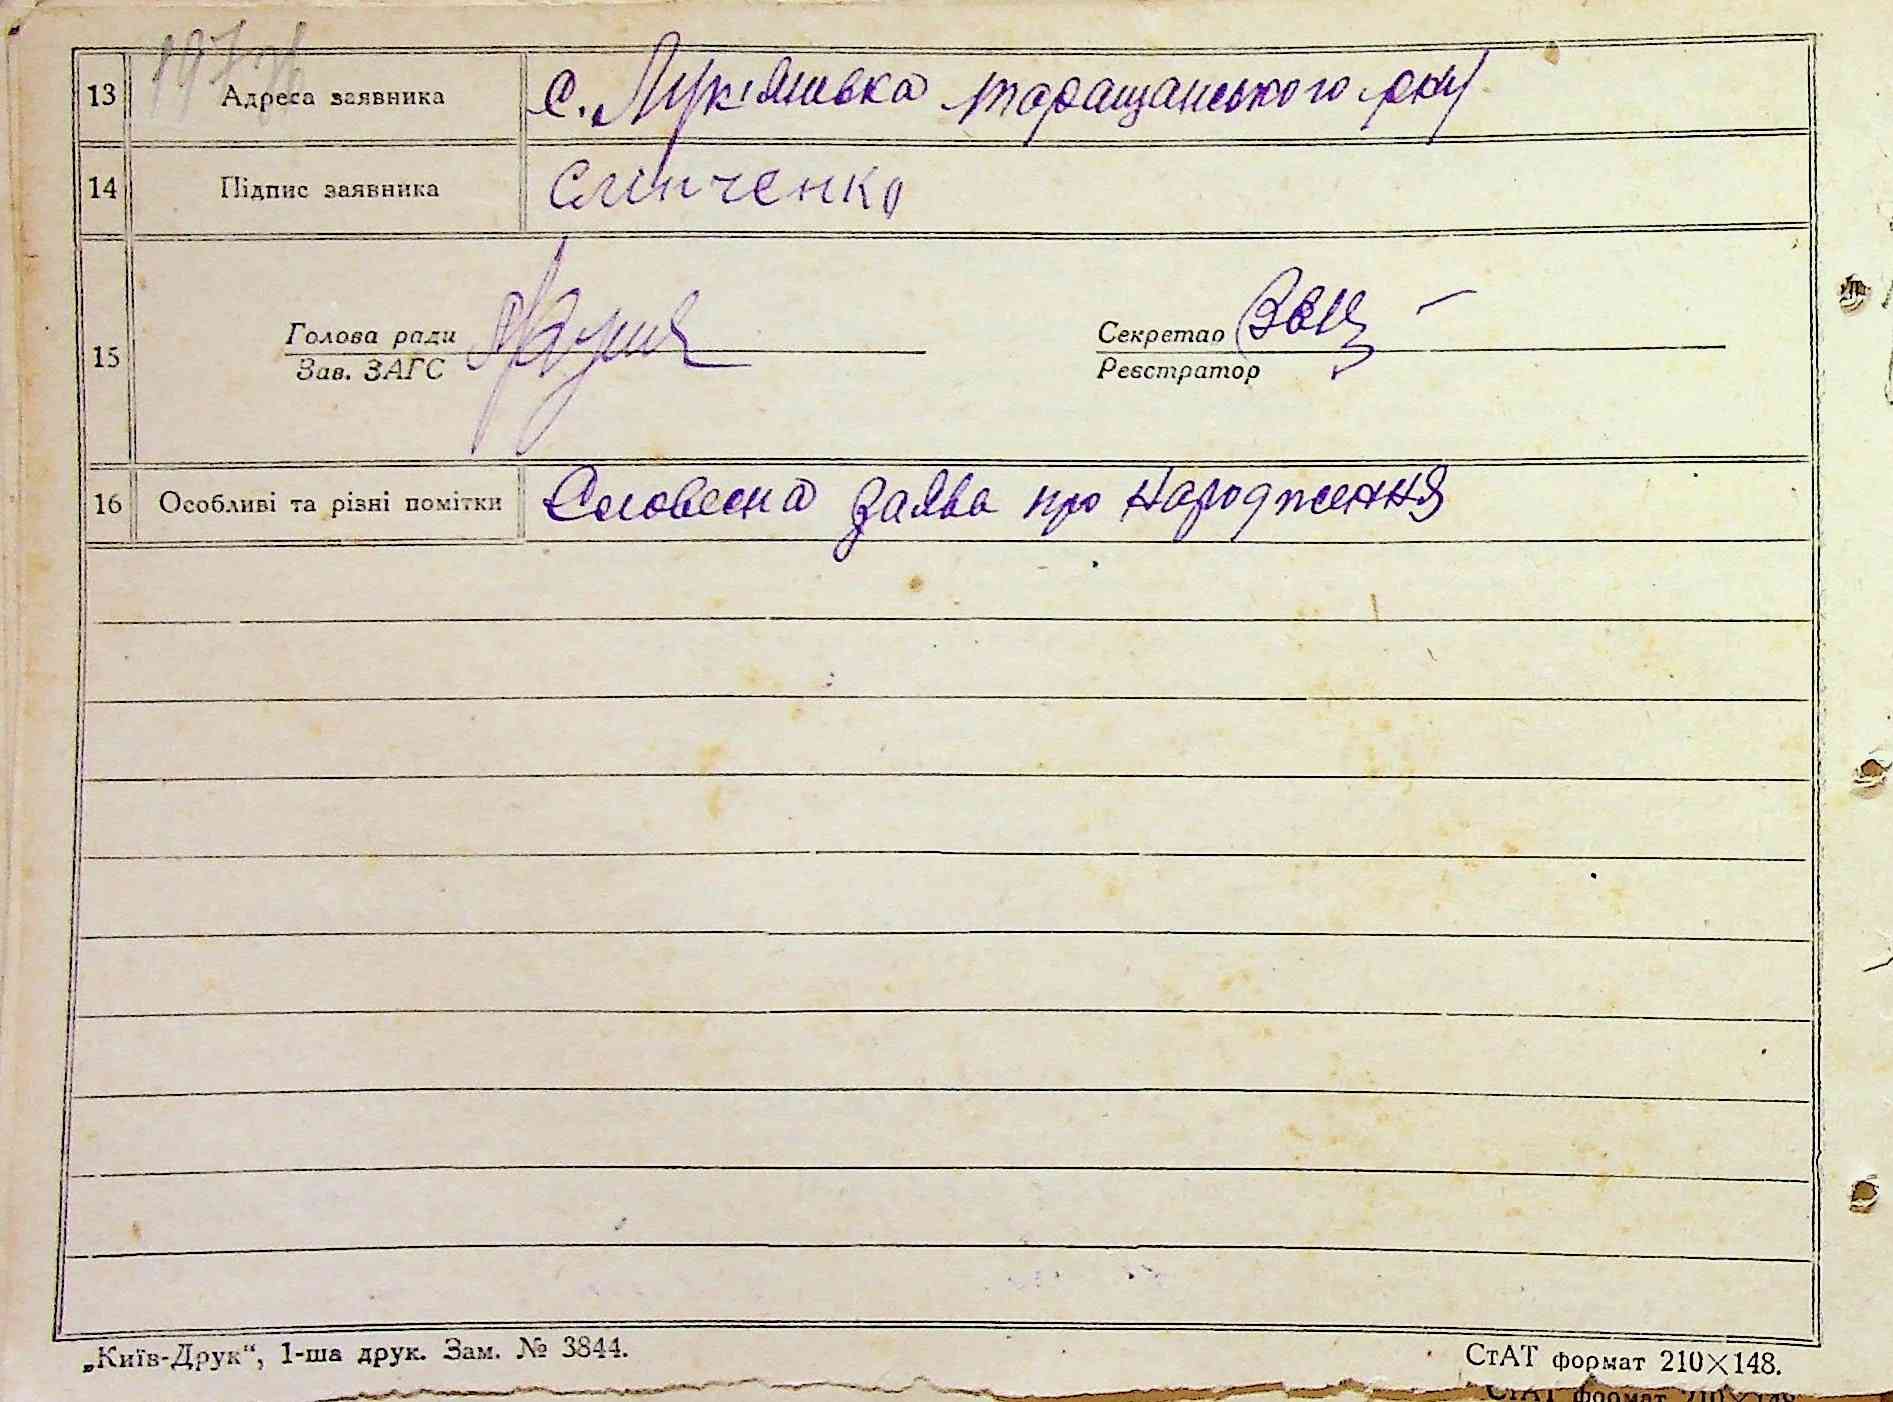 13 Адреса заявника с. Лукіянівка таращанського рну
14 Підпис заявника Слінченко
Голова ради Секретар
15
Зав. ЗАГС Реєстратор
16 Особливі та різні помітки Словесна заява про народження
„Київ-Друк“, 1-ша друк. Зам. № 3844. СтАТ формат 210×148.
СтАТ формат 210×148